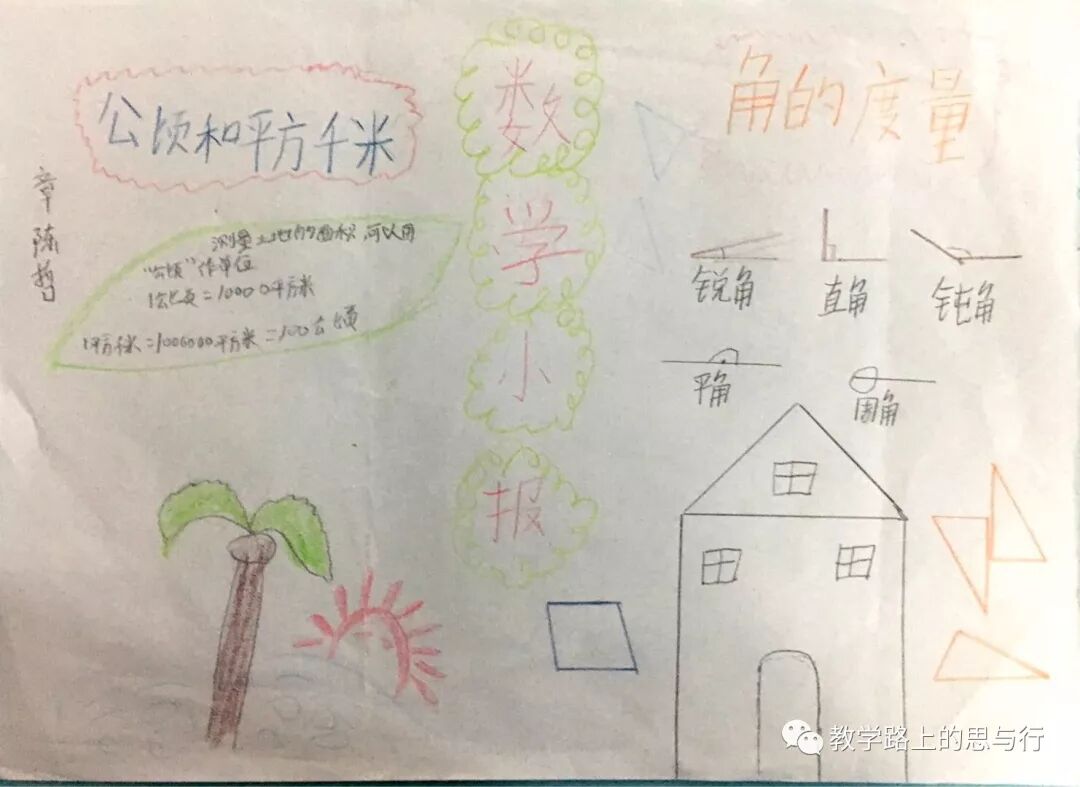 公顷和平方千米
数学小报
角的度量
章陈哲
测量土地的面积,可以用
“公顷”作单位
1公顷=10000平方米
1平方千米=1000000平方米=100公顷
锐角
直角
钝角
平角
周角
教学路上的思与行